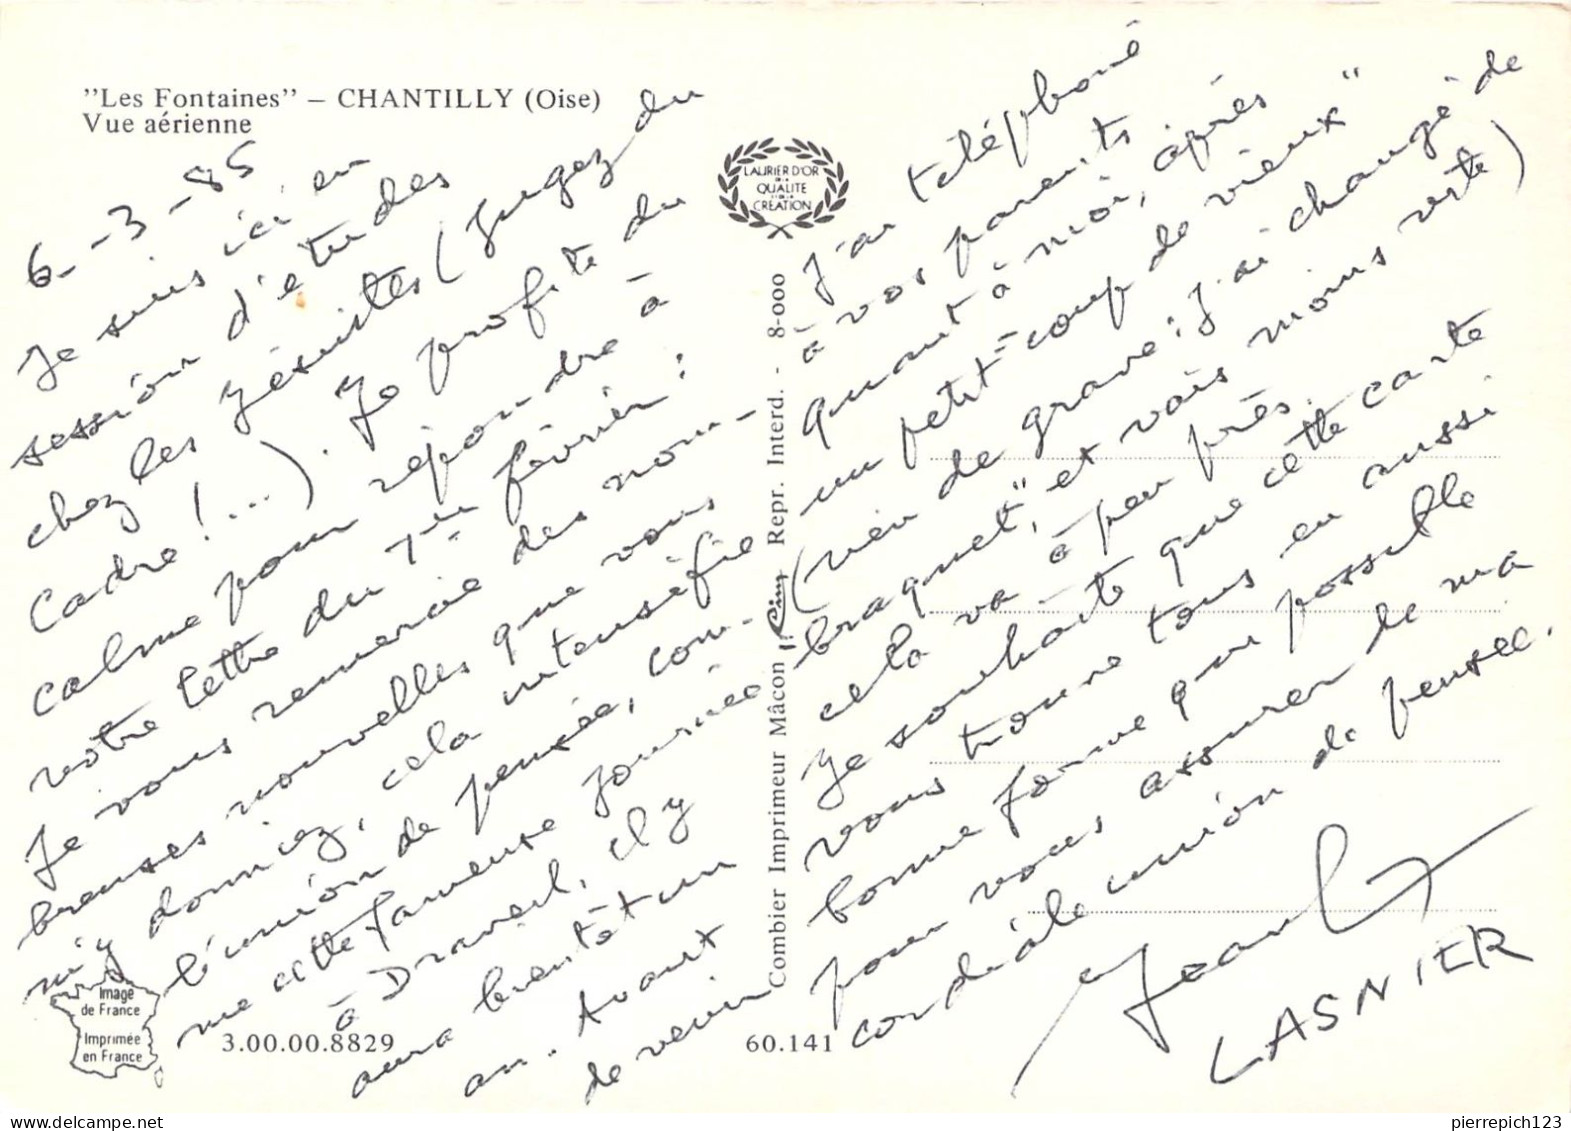 "Les Fontaines" – CHANTILLY (Oise)
Vue aérienne
6-3-85
Je suis ici en
session d'études
chez les Jésuites (Jugez du
Cadre !...). Je profite du
calme pour répondre à
votre lettre du 7 février :
Je vous remercie des nom-
breuses nouvelles que vous
m'y donniez, cela intensifie
l'union de pensée, com-
me cette fameuse journée
à Draveil, il y
aura bientôt un
an. Avant
de venir
J'ai téléphoné
à vos parents
quant à moi, après
un petit "coup de vieux"
(rien de grave : j'ai changé de
braquet", et vais moins vite)
cela va à peu près.
Je souhaite que cette carte
vous trouve tous en aussi
bonne forme que possible
pour vous assurer de ma
cordiale union de pensée.
Jean
LASNIER
LAURIER D'OR
DE LA
QUALITE
ET DE LA
CREATION
Combier Imprimeur Mâcon "Cim" Repr. Interd. - 8-000
Image
de France
Imprimée
en France
3.00.00.8829
60.141
pierrepich123